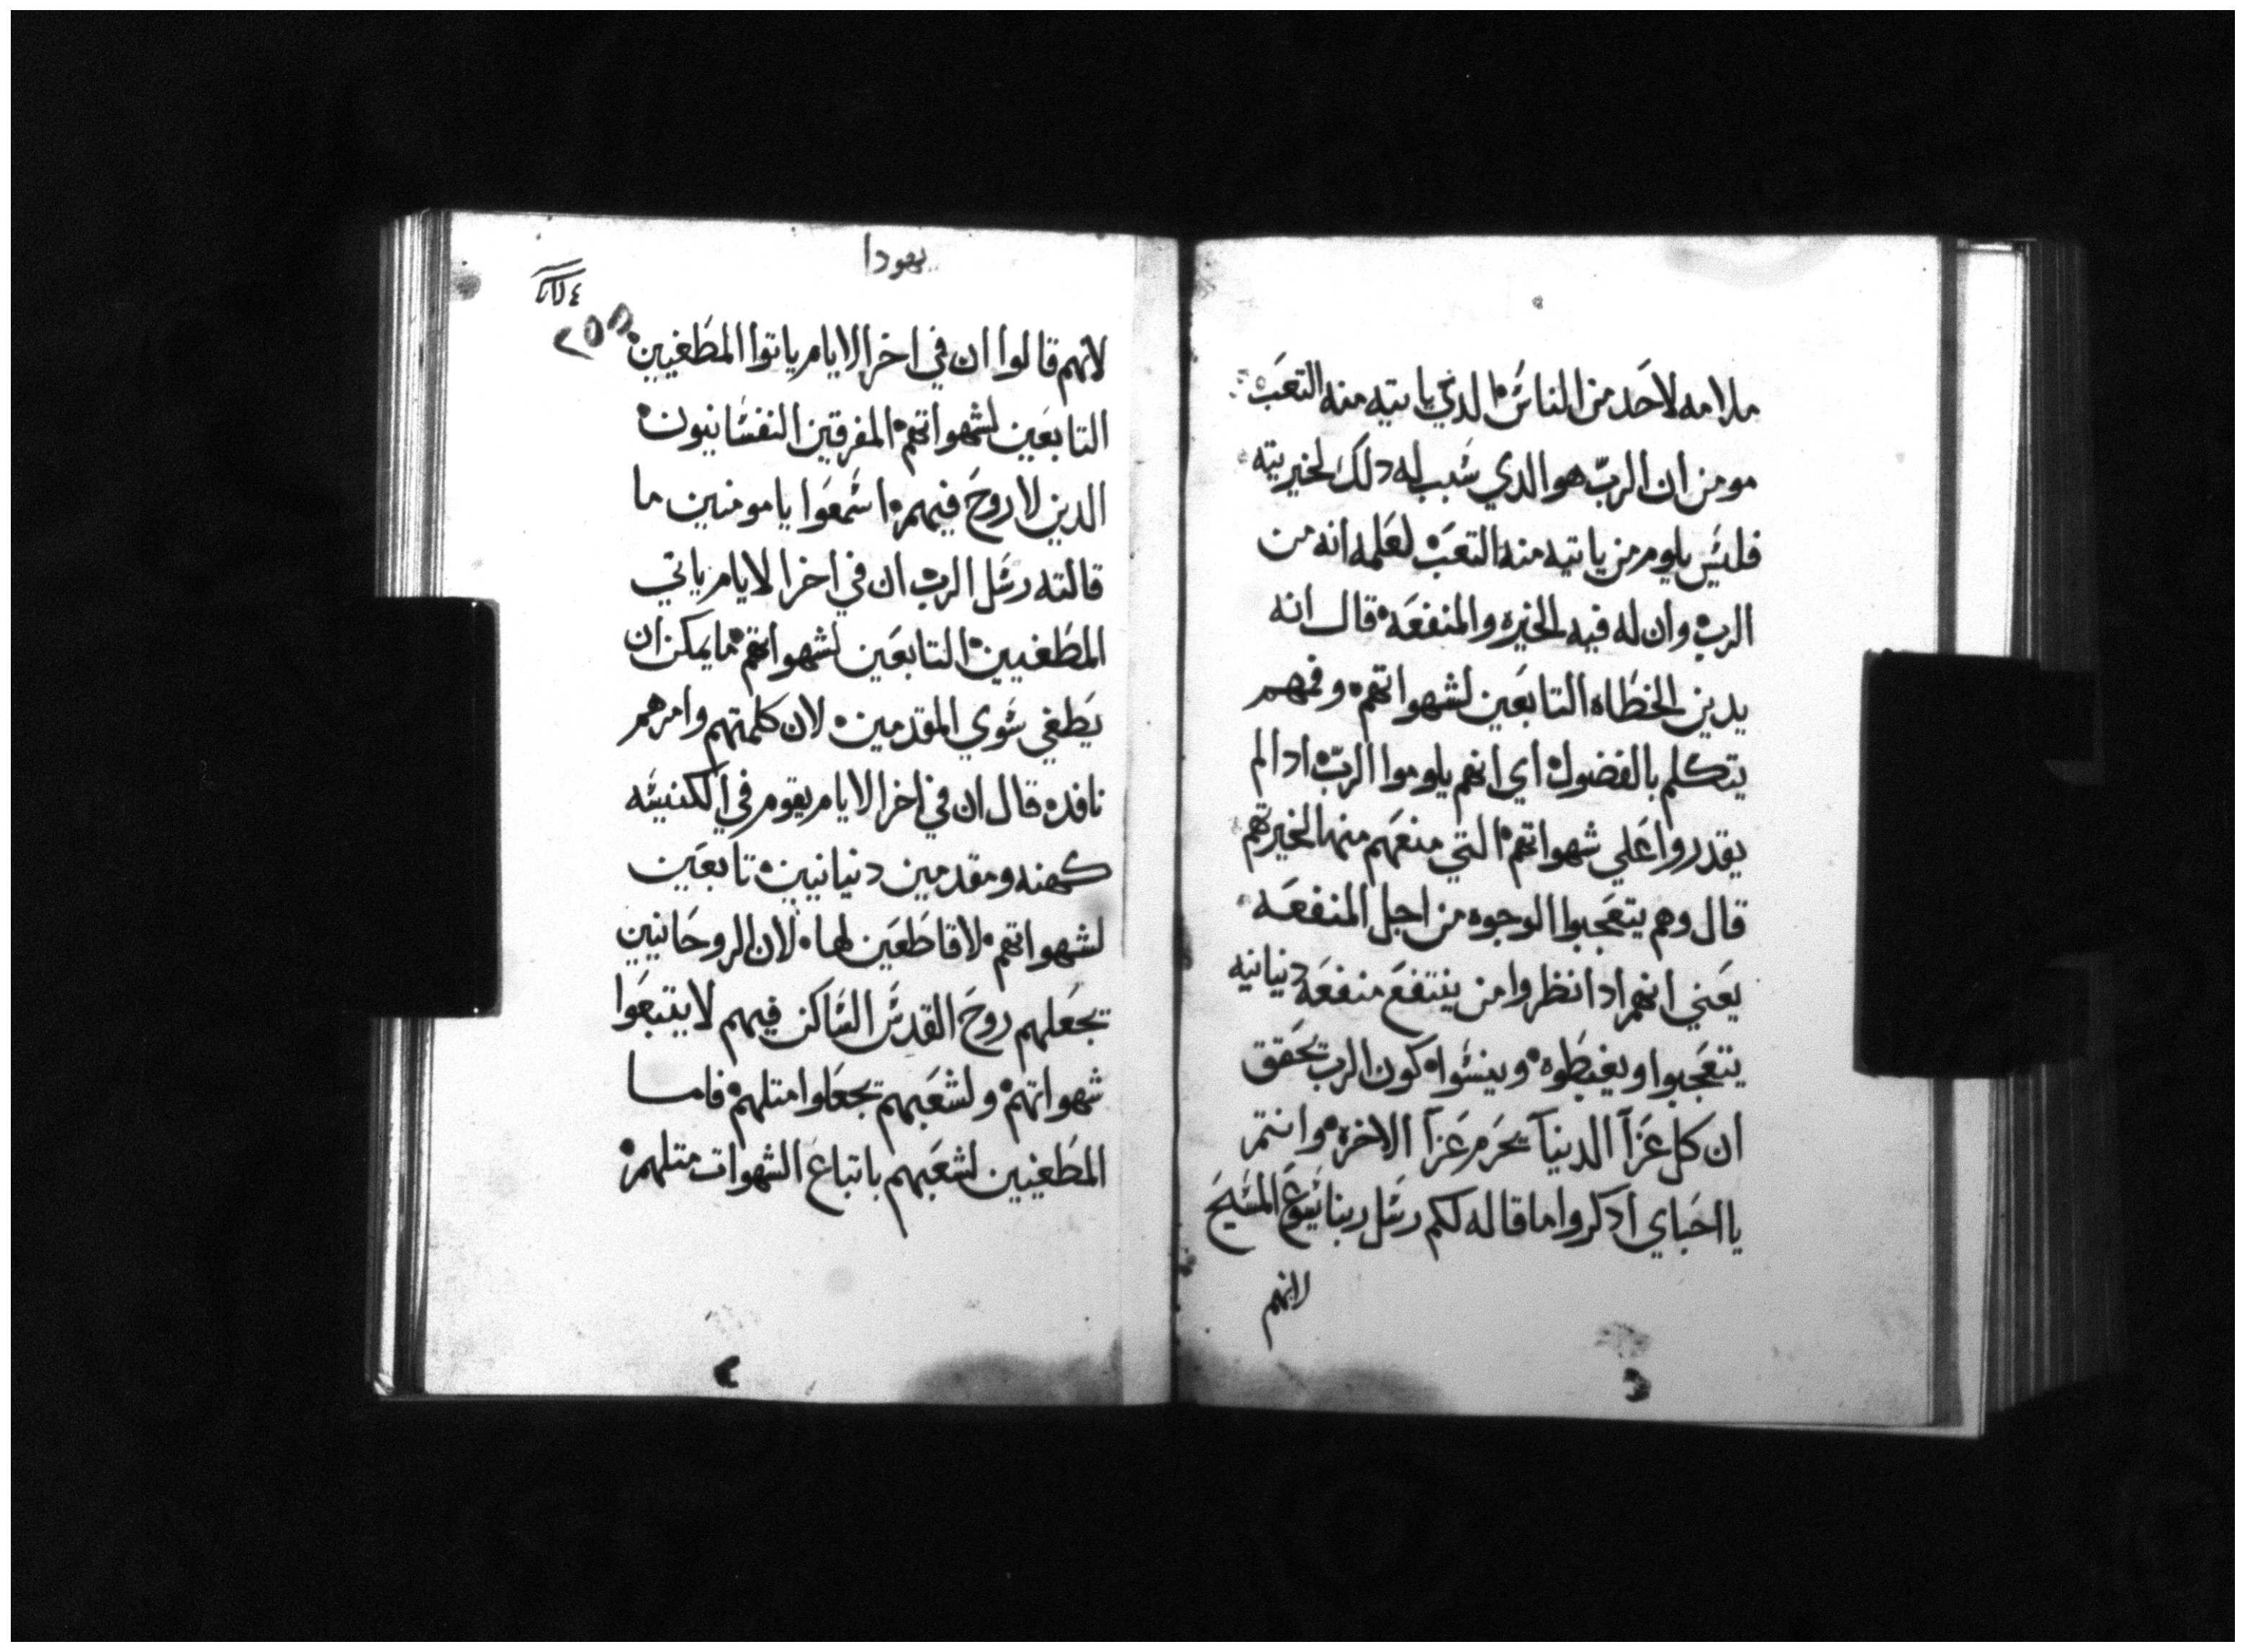 ملامه لاحد من الناس الدي ياتيه منه التعب
مومن ان الربّ هو الدي سبب له دلك لخيريته
فليس يلوم من ياتيه منه التعب لعلمه انه من
الرب وان له فيه الخيره والمنفعه قال انه
يدين الخطاه التابعين لشهواتهم وفمهم
يتكلم بالفضول اي انهم يلوموا الربّ ادا لم
يقدروا علي شهواتهم التي منعهم منها لخيرتهم
قال وهم يتعجبوا الوجوه من اجل المنفعه
يعني انهم ادا نظروا من ينتفع منفعه دنيانيه
يتعجبوا ويغبطوه وينسوا كون الرب تحقق
ان كل عزاً الدنيا يحرم عزاً الاخره وانتم
يا احباي ادكروا ما قاله لكم رسل ربنا يسوع المسيح
لانهم
يهودا
٢٥٥
لانهم قالوا ان في اخر الايام ياتوا المطغيين
التابعين لشهواتهم المفرقين النفسانيون
الدين لا روح فيهم اسمعوا يا مومنين ما
قالته رسل الرب ان في اخر الايام ياتي
المطغيين التابعين لشهواتهم ما يمكن ان
يطغي سوي المقدمين لان كلمتهم وامرهم
نافده قال ان في اخر الايام يقوم في الكنيسه
كهنه ومقدمين دنيانيين تابعين
لشهواتهم لا قاطعين لها لان الروحانيين
تجعلهم روح القدس الساكن فيهم لا يتبعوا
شهواتهم ولشعبهم تجعلوا متلهم فاما
المطغيين لشعبهم باتباع الشهوات متلهم